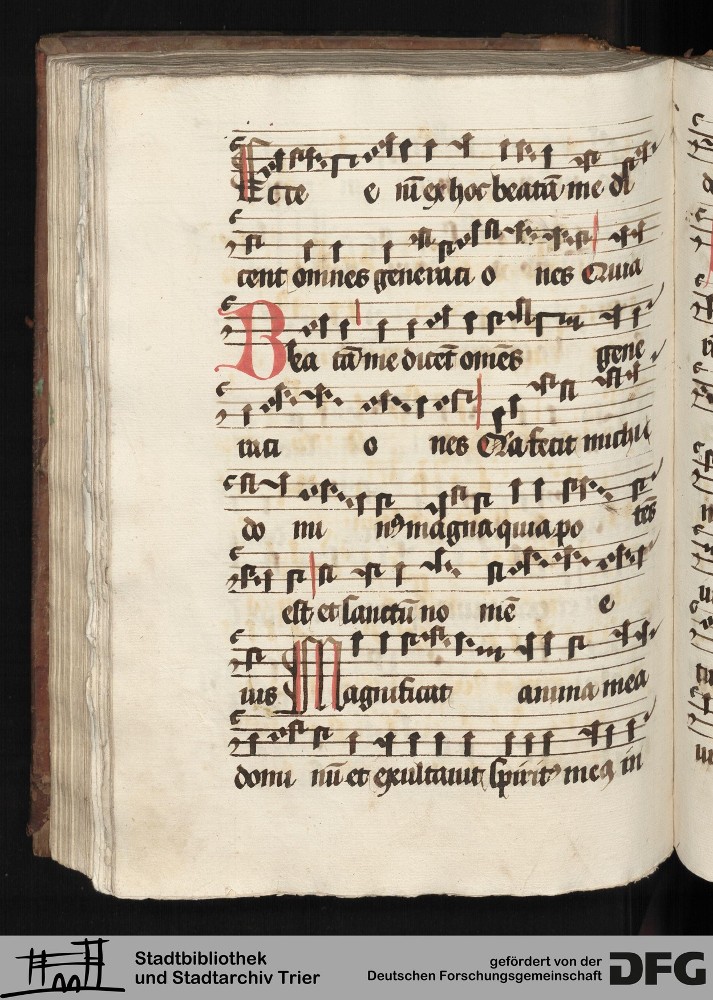 Ecce e nī ex hoc beatā me di
cent omnes generati o nes Quia
Bea tā me dicēt omēs gene
rati o nes Q̄a fecit michi
do mi nꝰ magna quia po tēs
est et sanctū no mē e
ius Magnificat anima mea
domi nū et exultauit spiritꝰ meꝰ in
Stadtbibliothek
und Stadtarchiv Trier
gefördert von der
Deutschen Forschungsgemeinschaft
DFG